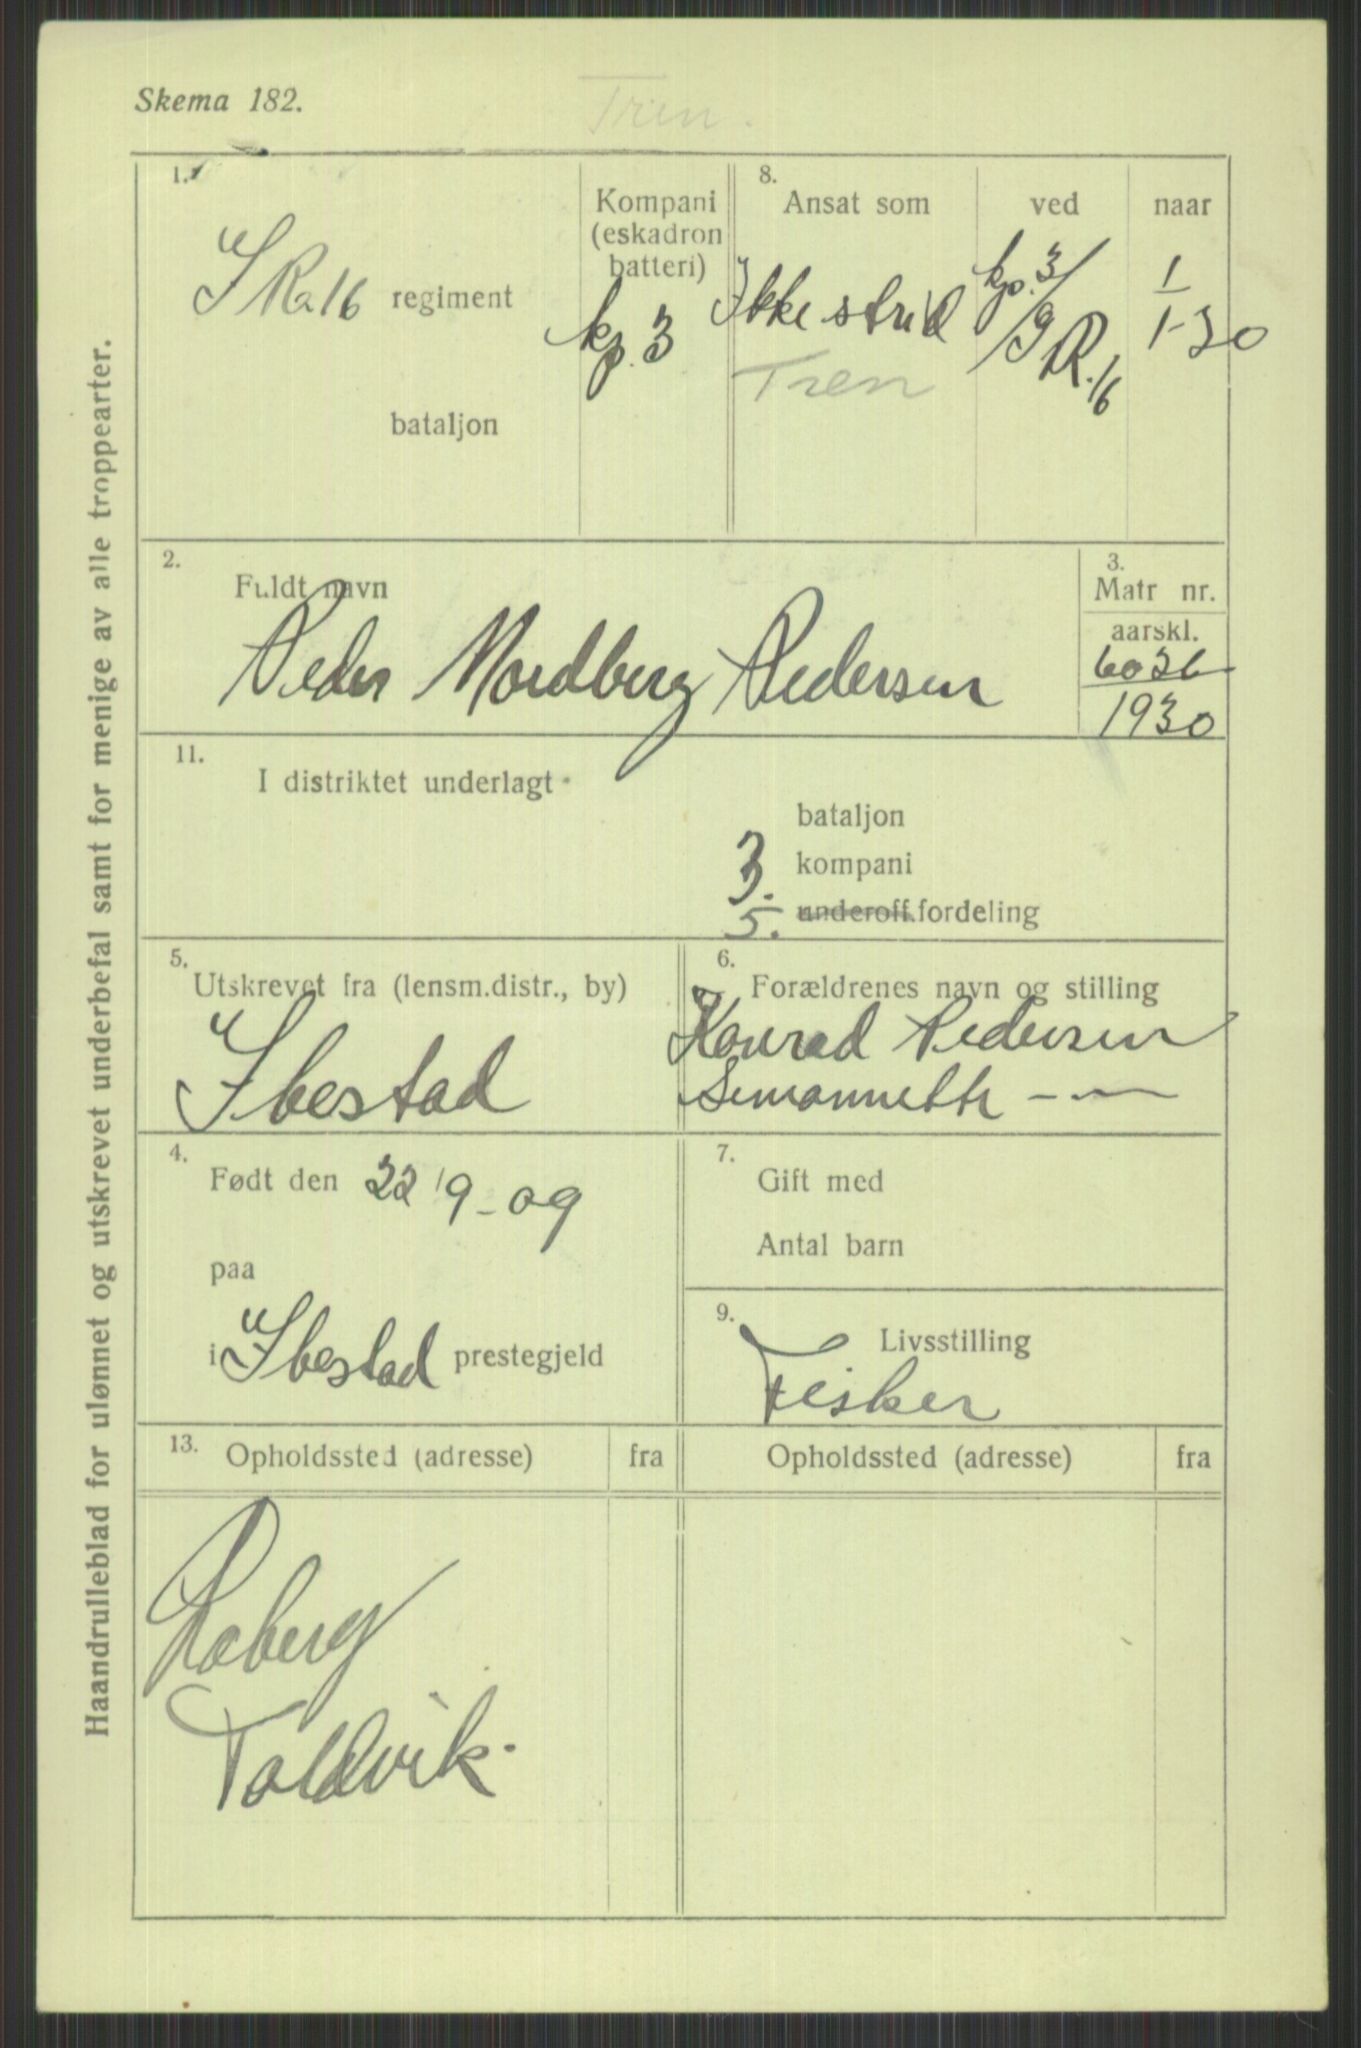 Skema 182.
Tren.
1.
I R. 16 regiment
bataljon
Kompani
(eskadron
batteri)
kp. 3
8.
Ansat som
Ikke strid
Tren
ved
kp. 3/
I R. 16
naar
1
1-30
2.
Fuldt navn
Peder Nordberg Pedersen
3.
Matr nr.
aarskl.
6036
1930
11.
I distriktet underlagt
bataljon
3. kompani
5. underoff.fordeling
5.
Utskrevet fra (lensm.distr., by)
Ibestad
6.
Forældrenes navn og stilling
Konrad Pedersen
— —
4.
Født den 22/9-09
paa
i Ibestad prestegjeld
7.
Gift med
Antal barn
9.
Livsstilling
Fisker
13. Opholdssted (adresse) fra
Opholdssted (adresse) fra
Roberg
Toldvik.
Haandrulleblad for ulønnet og utskrevet underbefal samt for menige av alle troppearter.